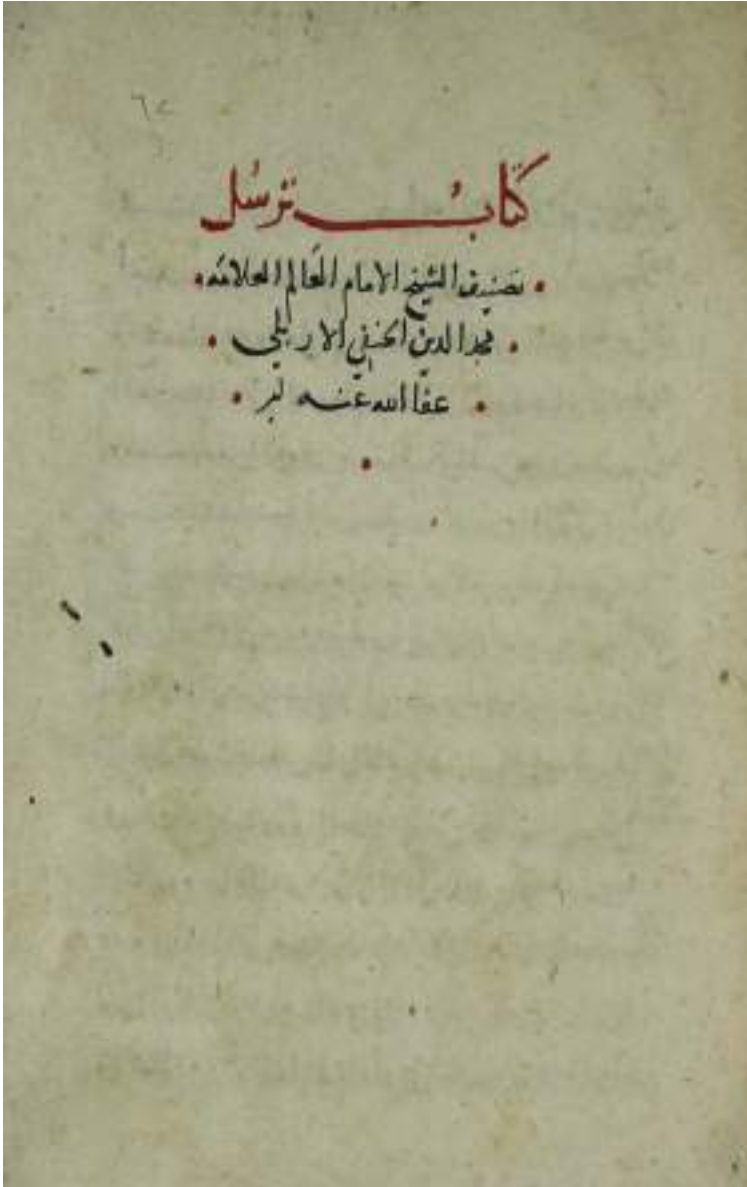 ٦٢
كتاب ترسل
تصنيف الشيخ الامام العالم العلامه
مجد الدين الحنفي الاربلي
عفا الله عنه